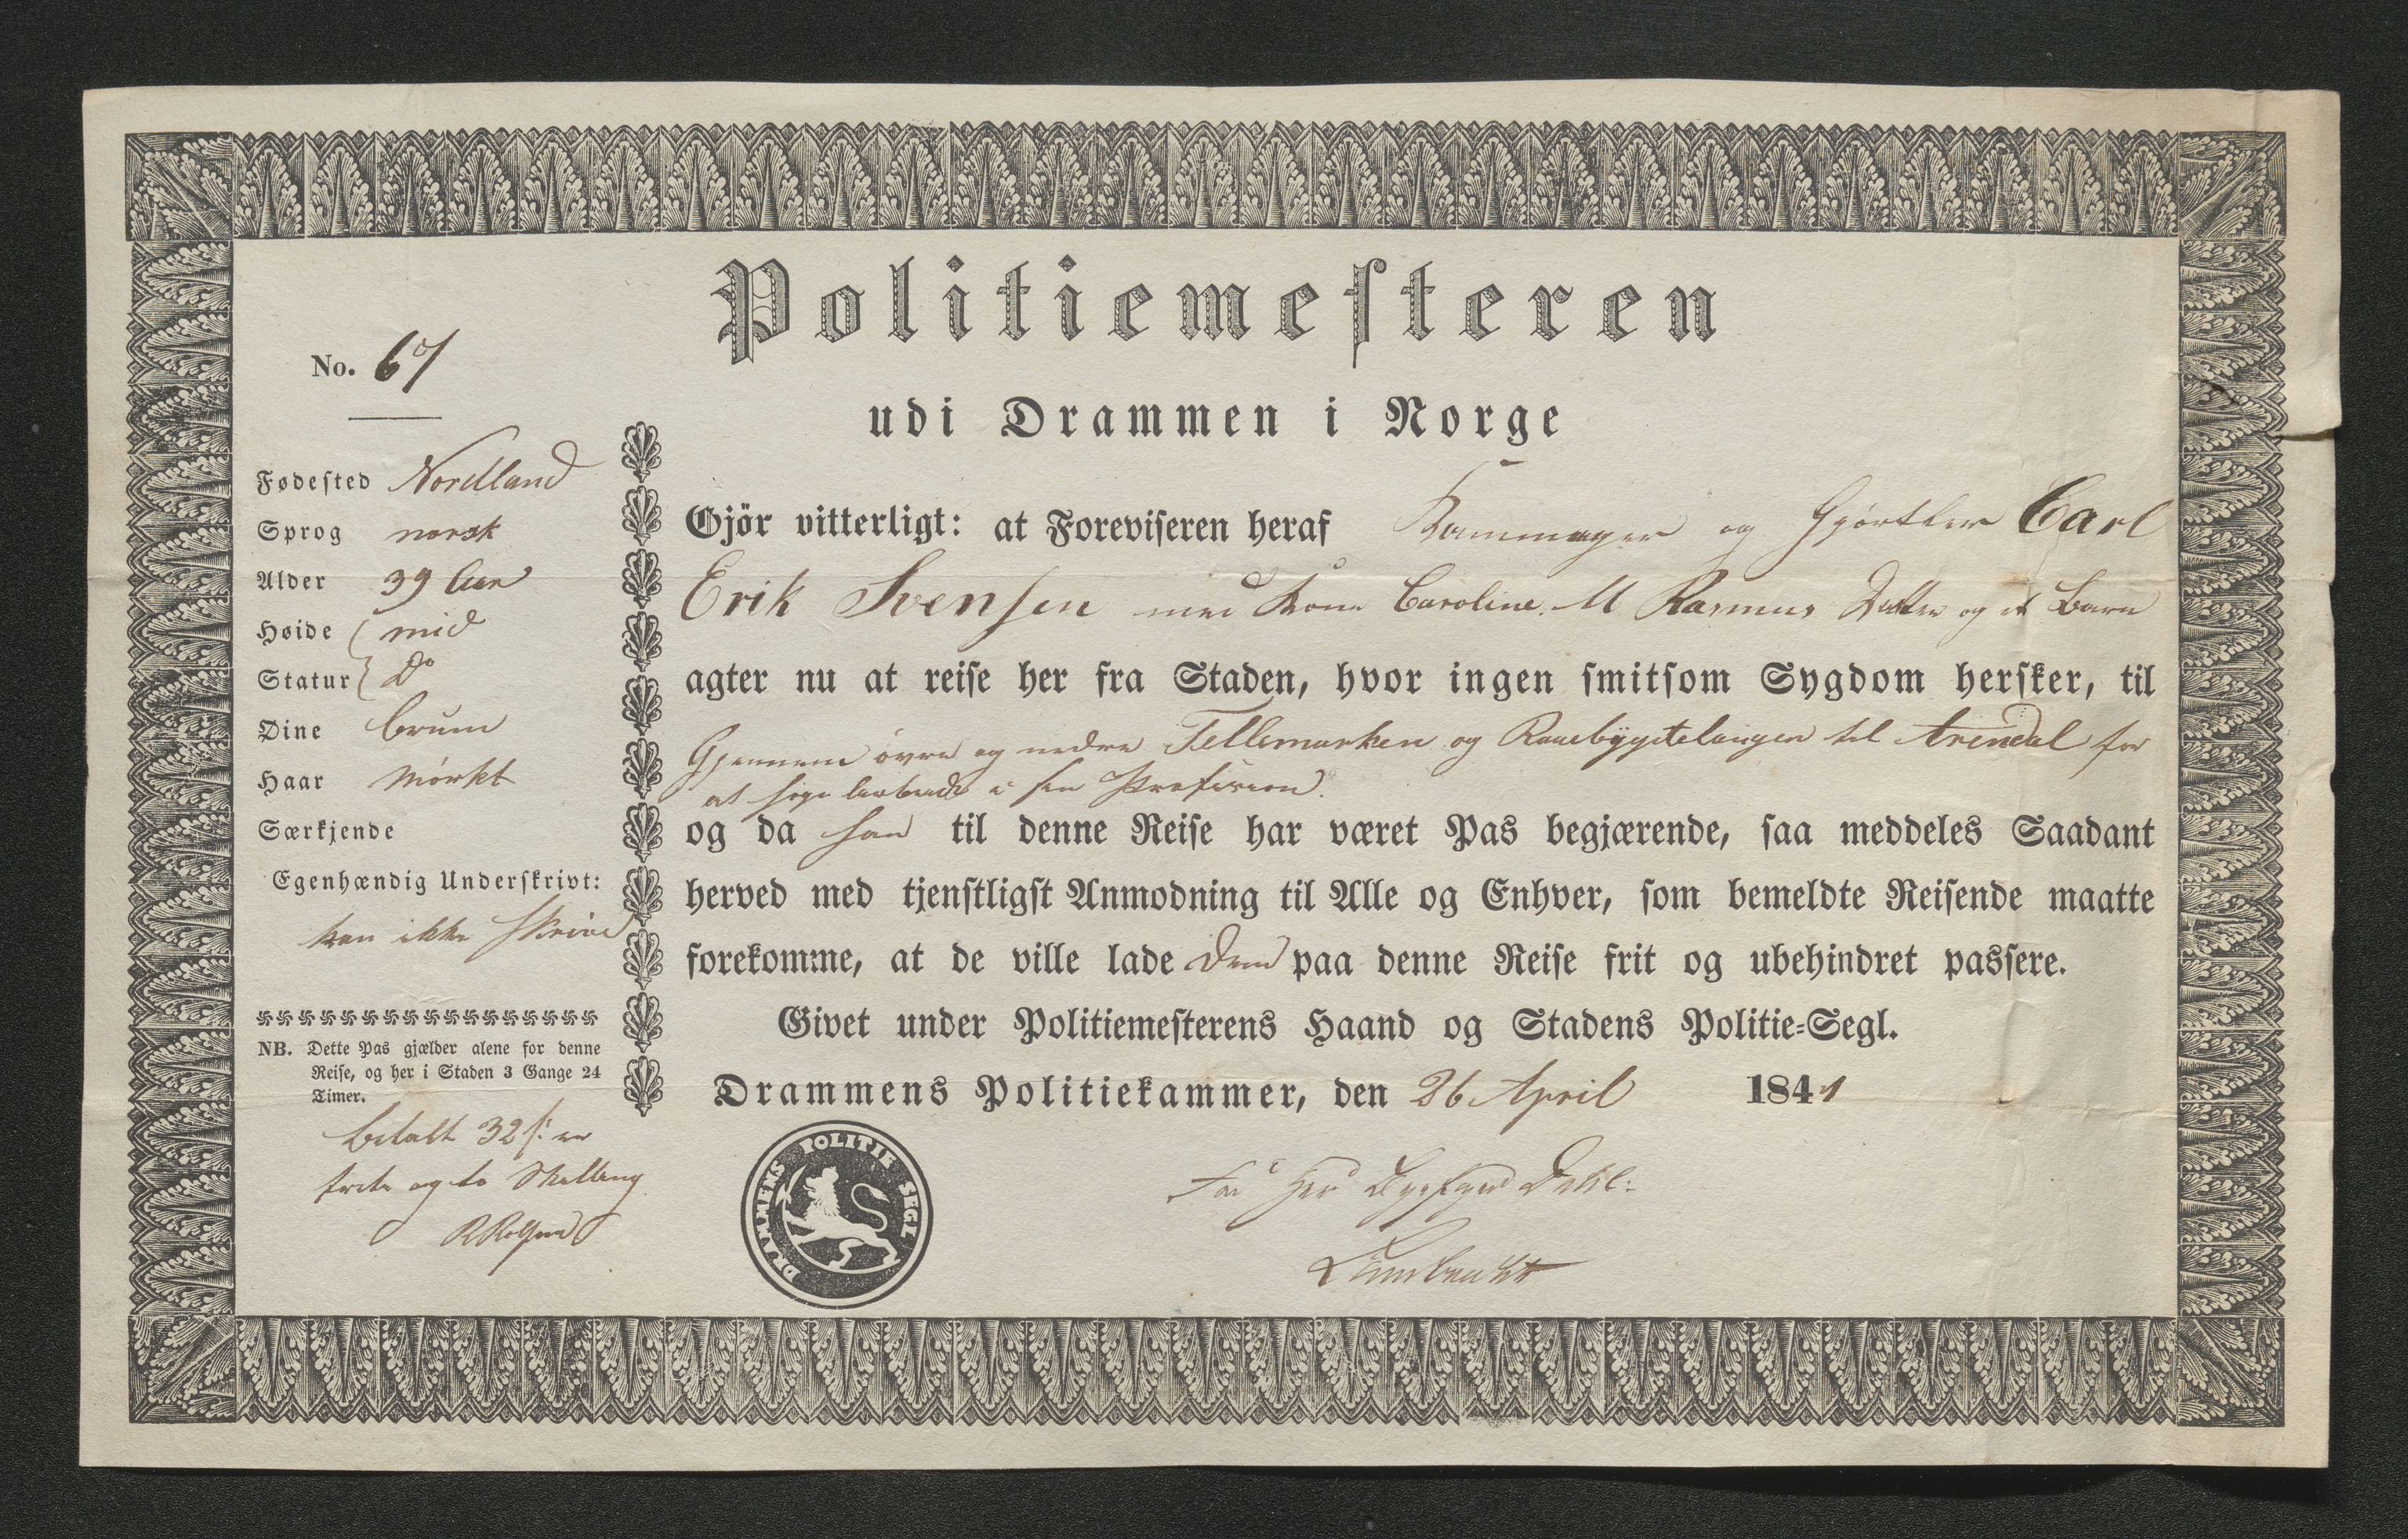 Politiemesteren
udi Drammen i Norge
No. 67
Fødested Nordland
Sprog norsk
Alder 39 Aar
Høide mid
Statur Do
Øine brune
Haar mørkt
Særkjende
Egenhændig Underskrivt:
kan ikke skrive
NB. Dette Pas gjælder alene for denne
Reise, og her i Staden 3 Gange 24
Timer.
betalt 32 s: er
treti og to Skilling
Gjör vitterligt: at Foreviseren heraf Kammager og Gjørtler Carl
Erik Svensen med Kone Caroline M Rasmus Datter og et Barn
agter nu at reise her fra Staden, hvor ingen smitsom Sygdom hersker, til
Gjennem øvre og nedre Tellemarken og Raabygdelauget til Arendal for
at søge Arbeide i sin Profession.
og da han til denne Reise har været Pas begjærende, saa meddeles Saadant
herved med tjenstligst Anmodning til Alle og Enhver, som bemeldte Reisende maatte
forekomme, at de ville lade dem paa denne Reise frit og ubehindret passere.
Givet under Politiemesterens Haand og Stadens Politie-Segl.
Drammens Politiekammer, den 26 April 1841
DRAMMENS POLITIE SEGL